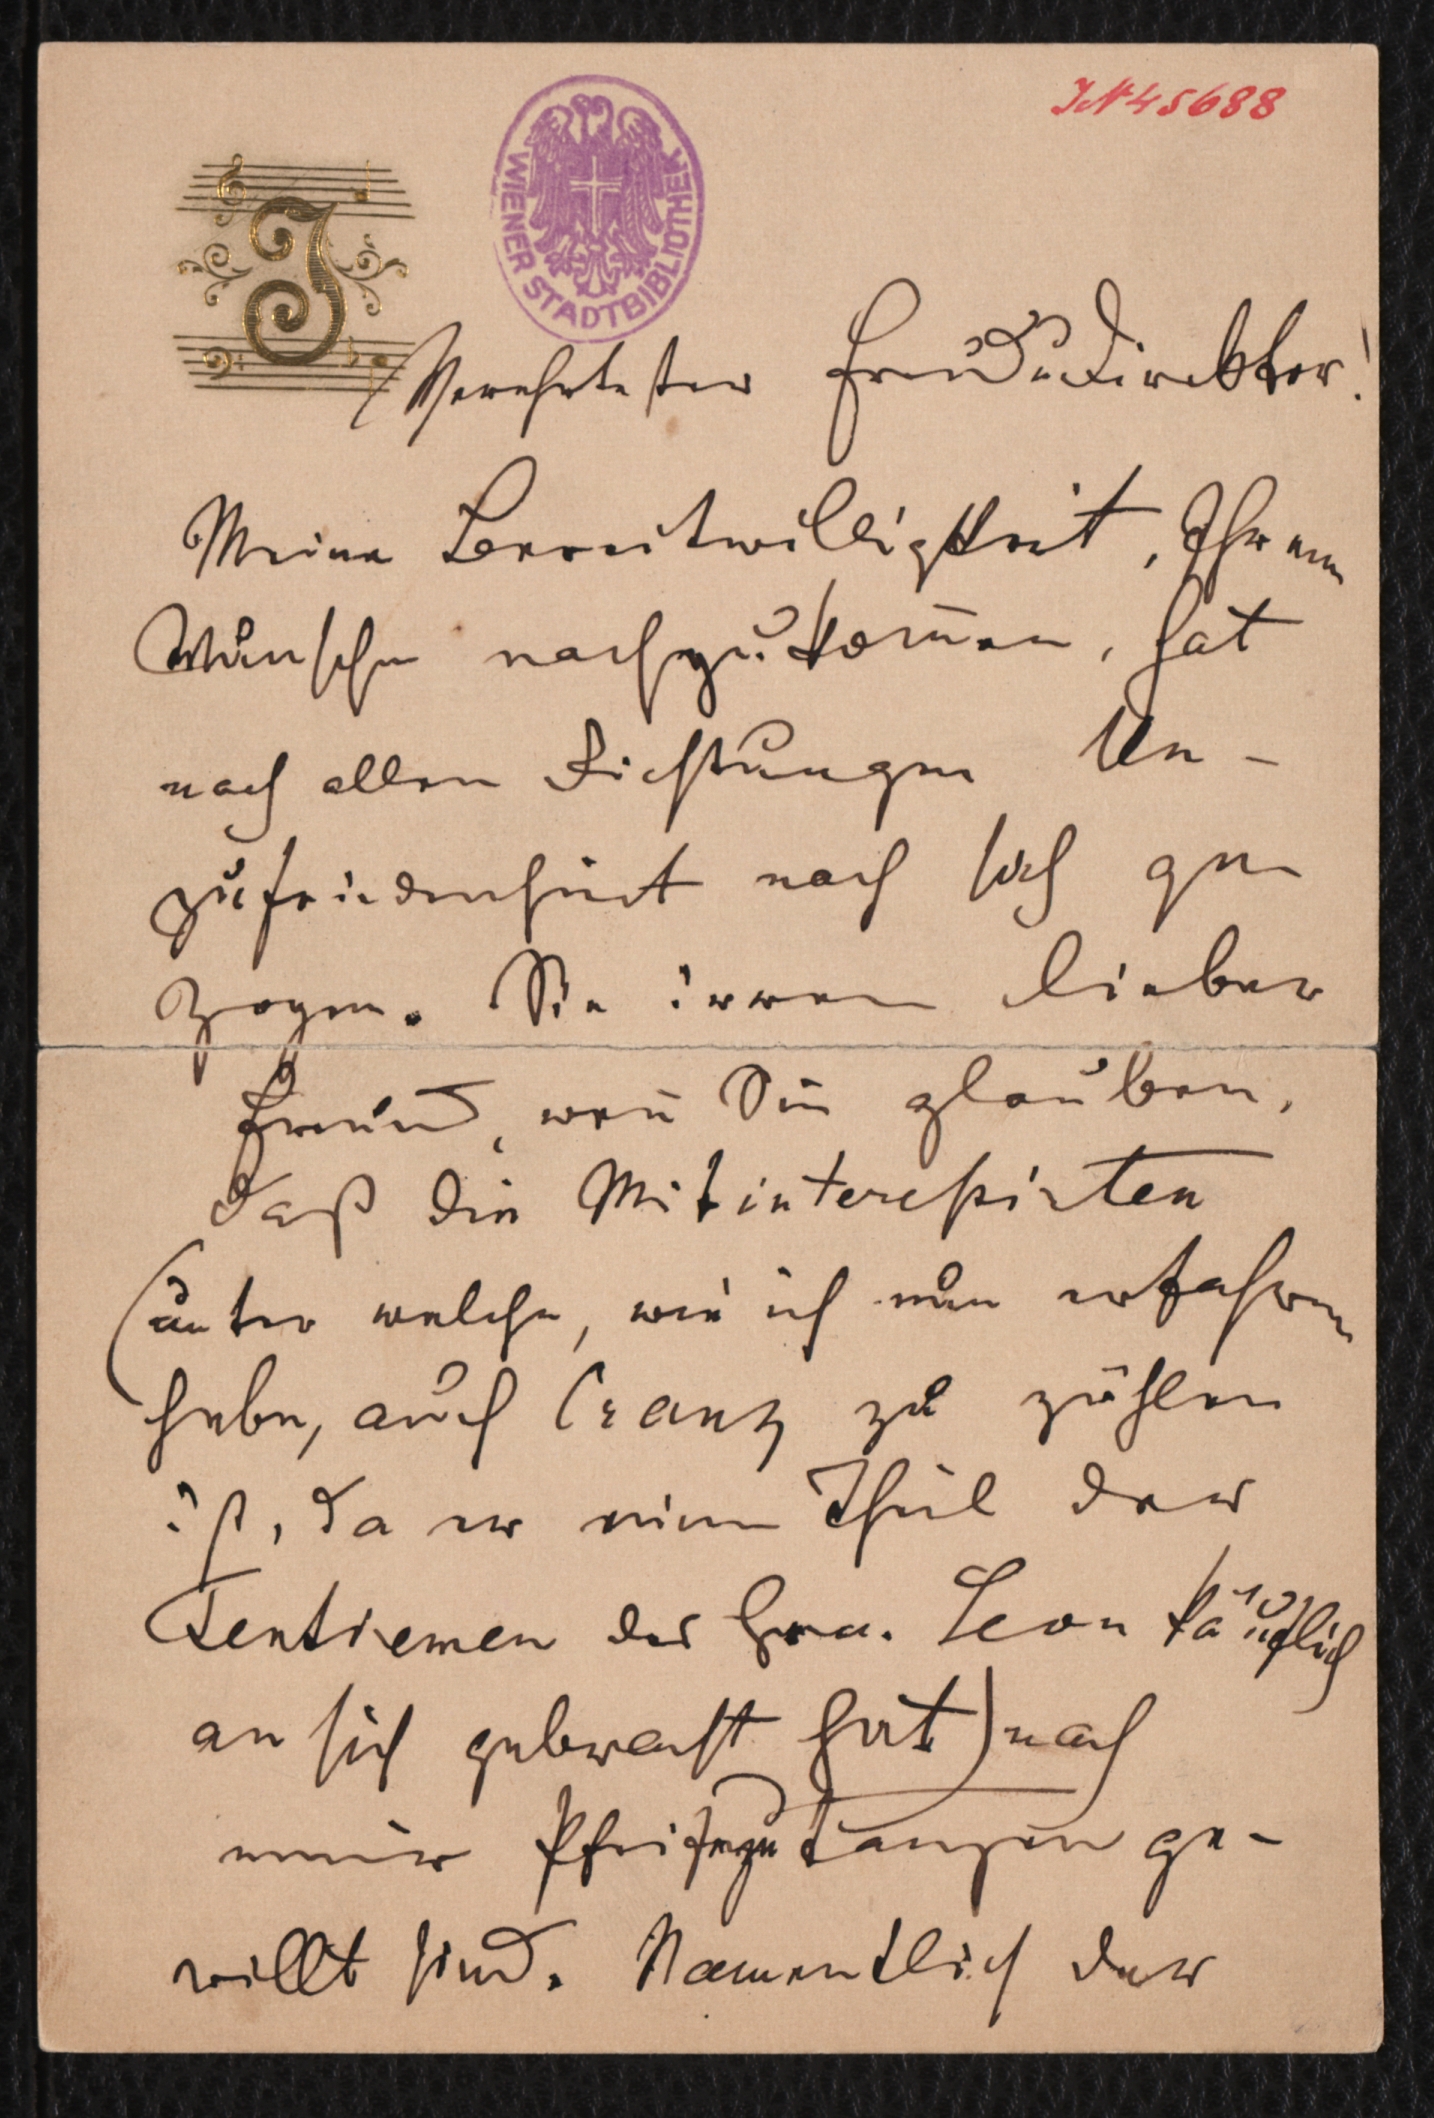 IN 45688
WIENER STADTBIBLIOTHEK
J
Verehrtester Freund u Direktor!
Meine Bereitwilligkeit, Ihrem
Wunsche nachzukom̅en, hat
nach allen Richtungen Un-
zufriedenheit nach sich ge
zogen. Sie irren lieber
Freund, wen̅ Sie glauben,
daß die Mitinteressirten
(unter welche, wie ich nun erfahren
habe, auch Cranz zu zählen
ist, da er einen Theil der
Tentiemen des Hrn. Leon käuflich
an sich gebracht hat) nach
meiner Pfeife zu tanzen ge-
willt sind. Namentlich der